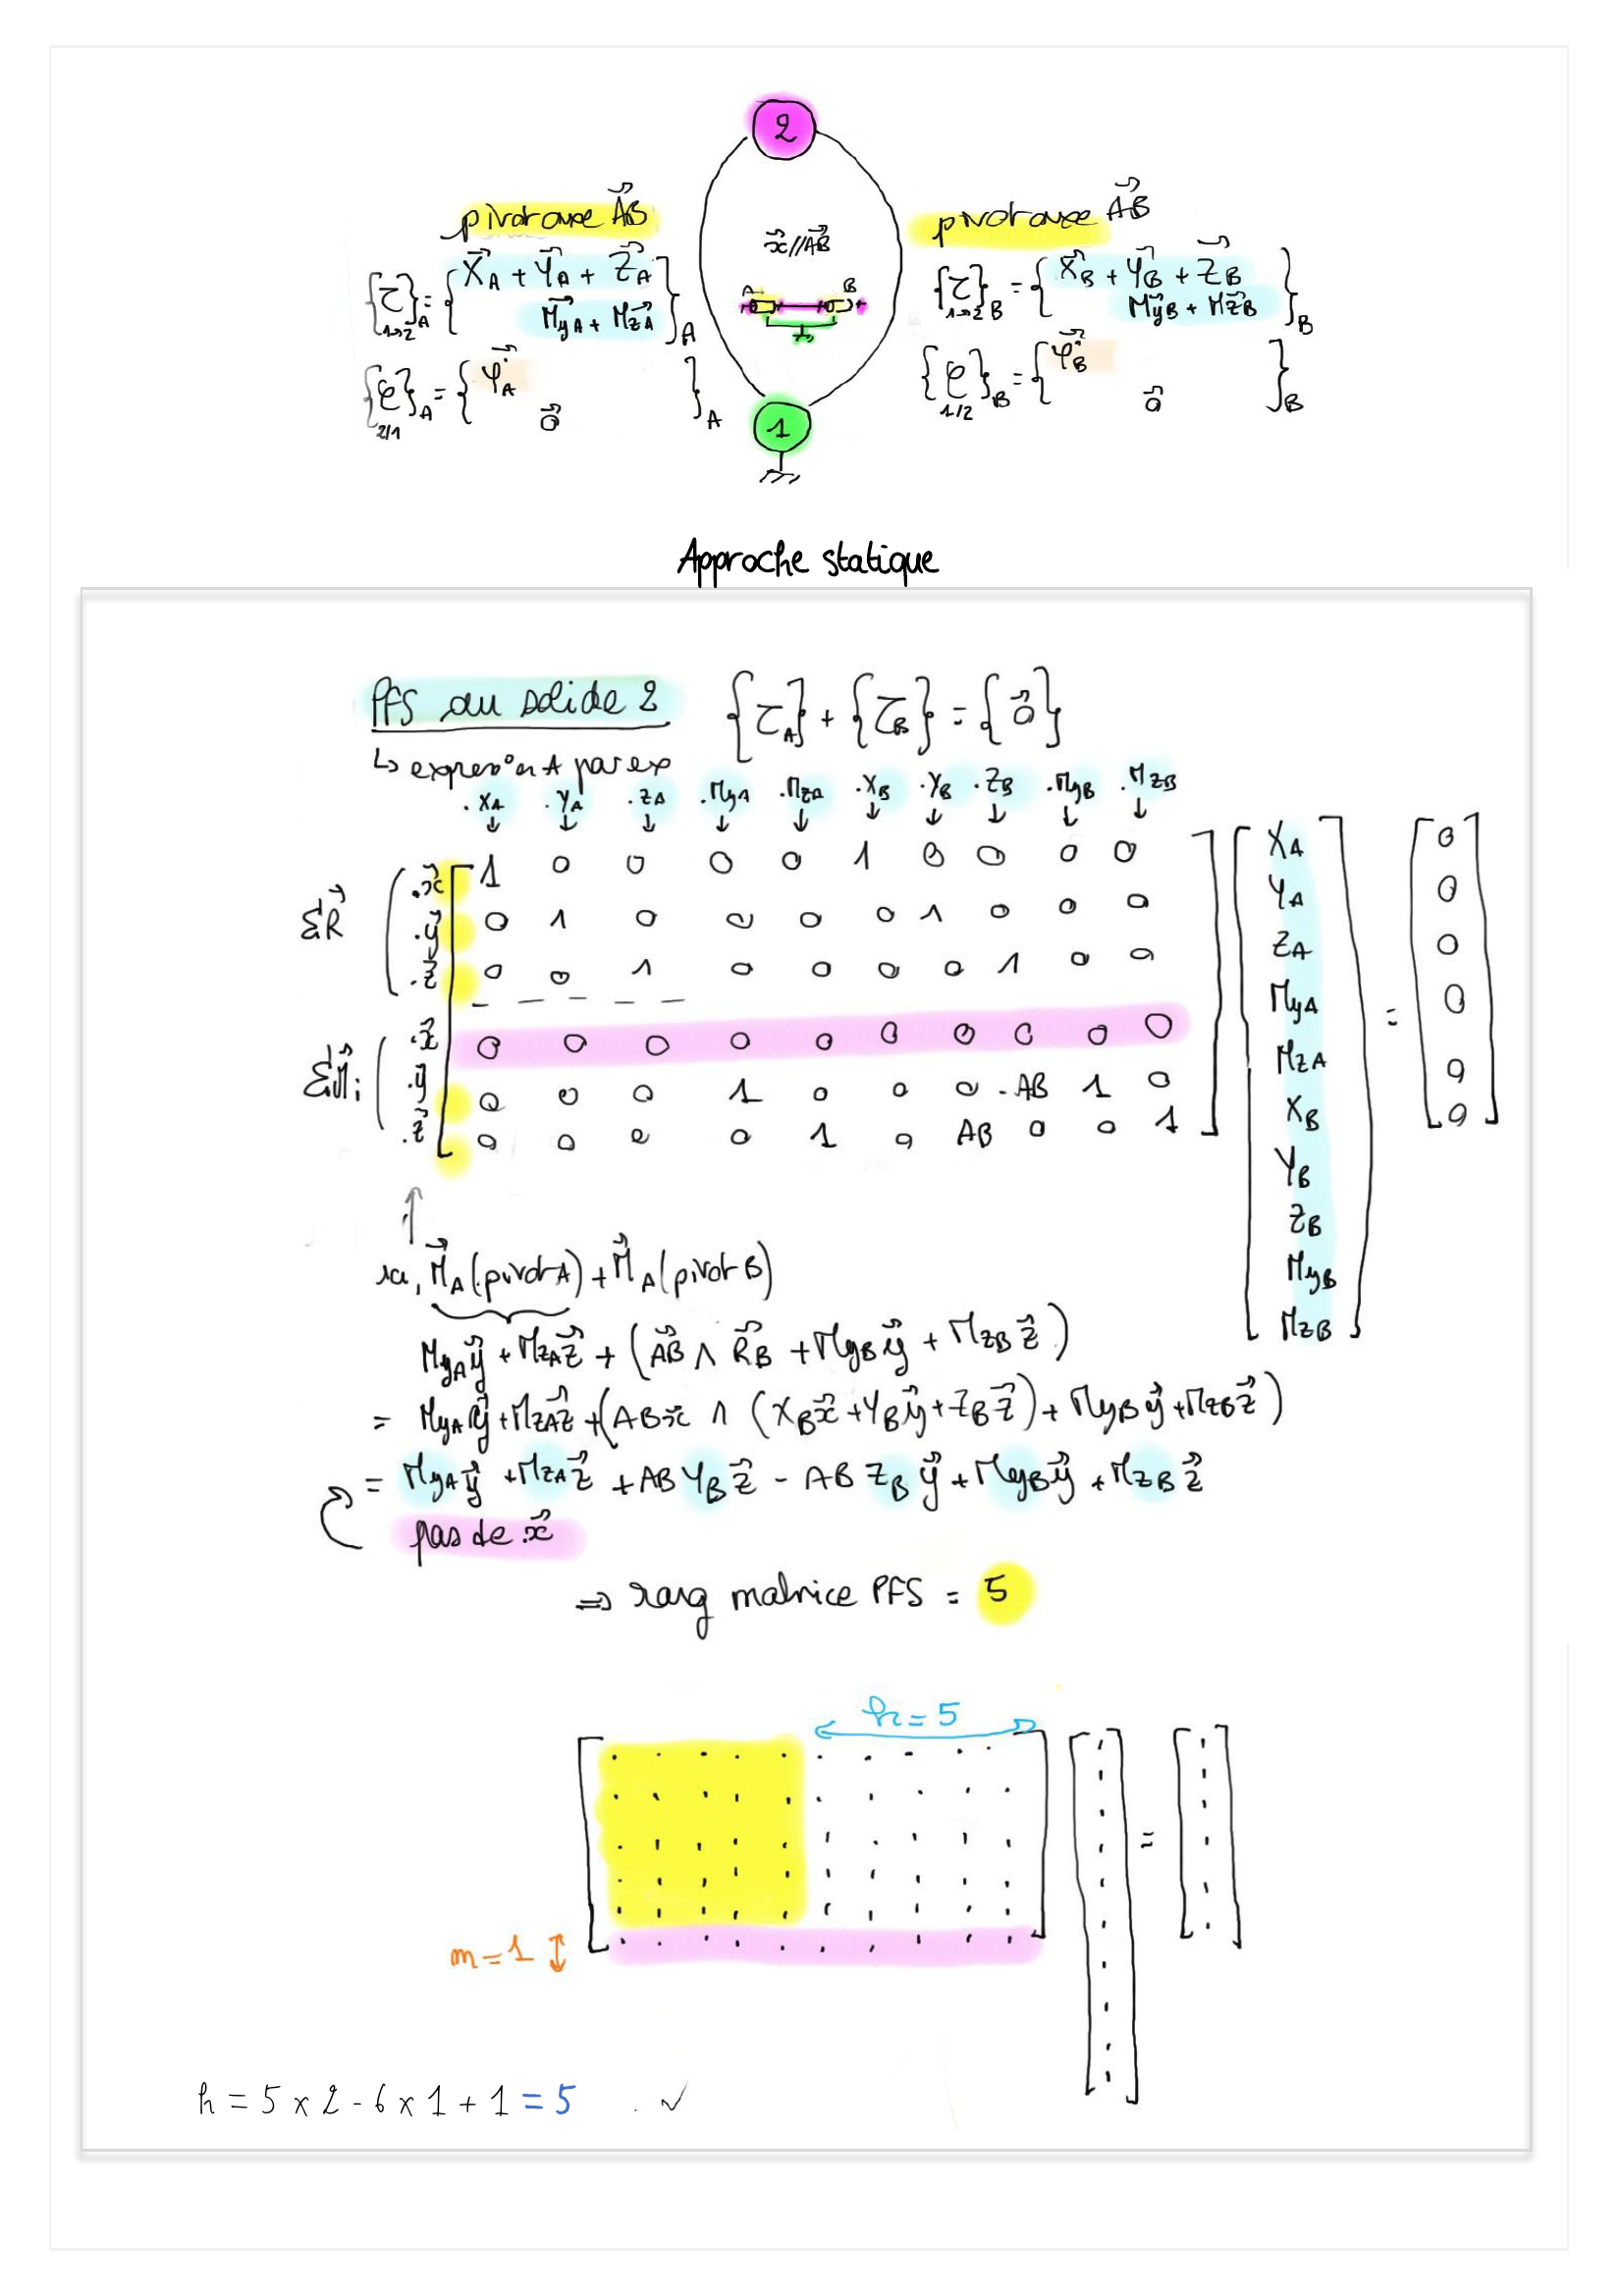 2
pivot axe AB
pivot axe AB
x // AB
{τ}A = {XA + YA + ZA
1→2
MyA + MzA}A
A B
{τ}B = {XB + YB + ZB
1→2
MyB + MzB}B
{φ}A = {φ̇A
2/1
0}A
{φ}B = {φ̇B
1/2
0}B
1
Approche statique
PFS au solide 2 {τA} + {τB} = {0}
↳ expression A par ex
.XA .YA .ZA .MyA .MzA .XB .YB .ZB .MyB .MzB
↓ ↓ ↓ ↓ ↓ ↓ ↓ ↓ ↓ ↓
ΣR
.x 1 0 0 0 0 1 0 0 0 0
.y 0 1 0 0 0 0 1 0 0 0
.z 0 0 1 0 0 0 0 1 0 0
ΣMi
.x 0 0 0 0 0 0 0 0 0 0
.y 0 0 0 1 0 0 0 -AB 1 0
.z 0 0 0 0 1 0 AB 0 0 1
XA
YA
ZA
MyA
MzA
XB
YB
ZB
MyB
MzB
=
0
0
0
0
0
0
ici, MA(pivot A) + MA(pivot B)
MyA y + MzA z + (AB ∧ RB + MyB y + MzB z)
= MyA y + MzA z + (AB x ∧ (XB x + YB y + ZB z) + MyB y + MzB z)
= MyA y + MzA z + AB YB z - AB ZB y + MyB y + MzB z
pas de x
⇒ rang matrice PFS = 5
h = 5
=
m = 1
h = 5 x 2 - 6 x 1 + 1 = 5 . ✓